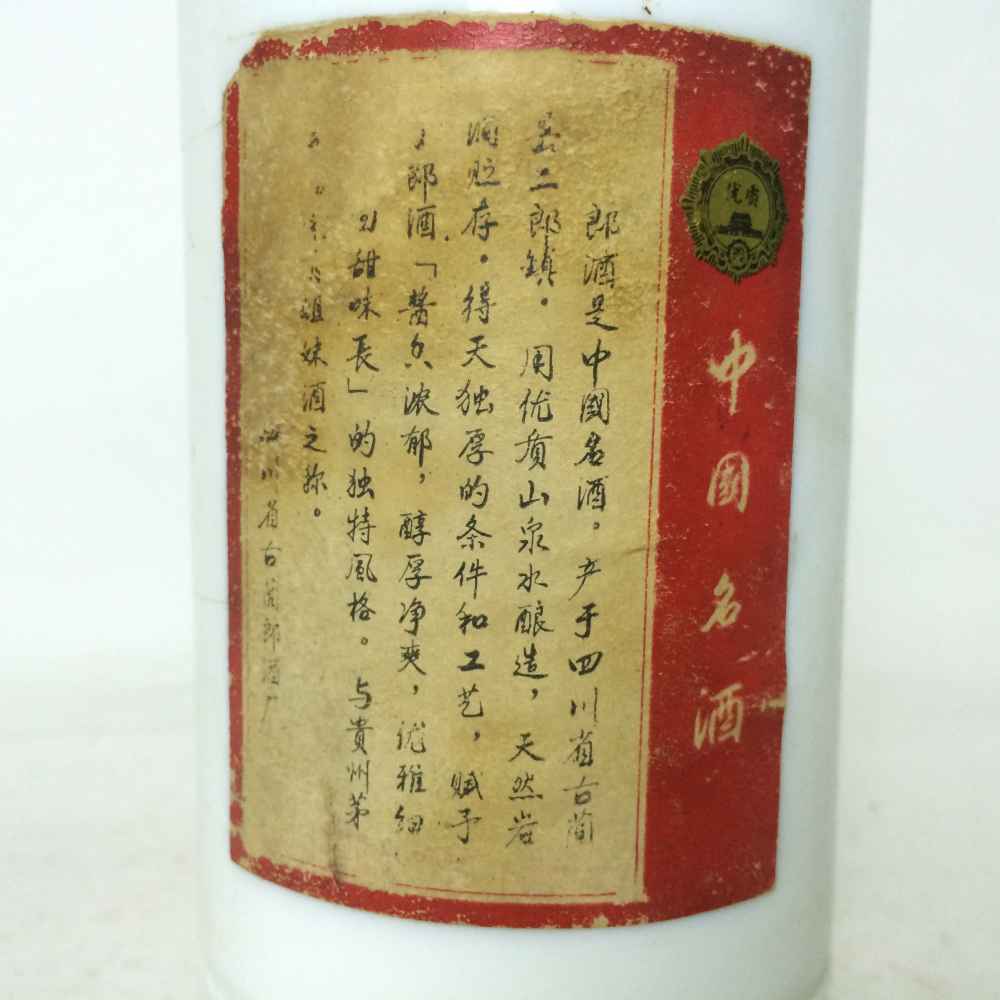 优质
中國名酒
郎酒是中國名酒。产于四川省古蔺
县二郎镇。用优质山泉水酿造，天然岩
洞贮存。得天独厚的条件和工艺，赋予
郎酒「醬香浓郁，醇厚净爽，优雅细
回甜味長」的独特風格。与貴州茅
姐妹酒之称。
四川省古蔺郎酒厂